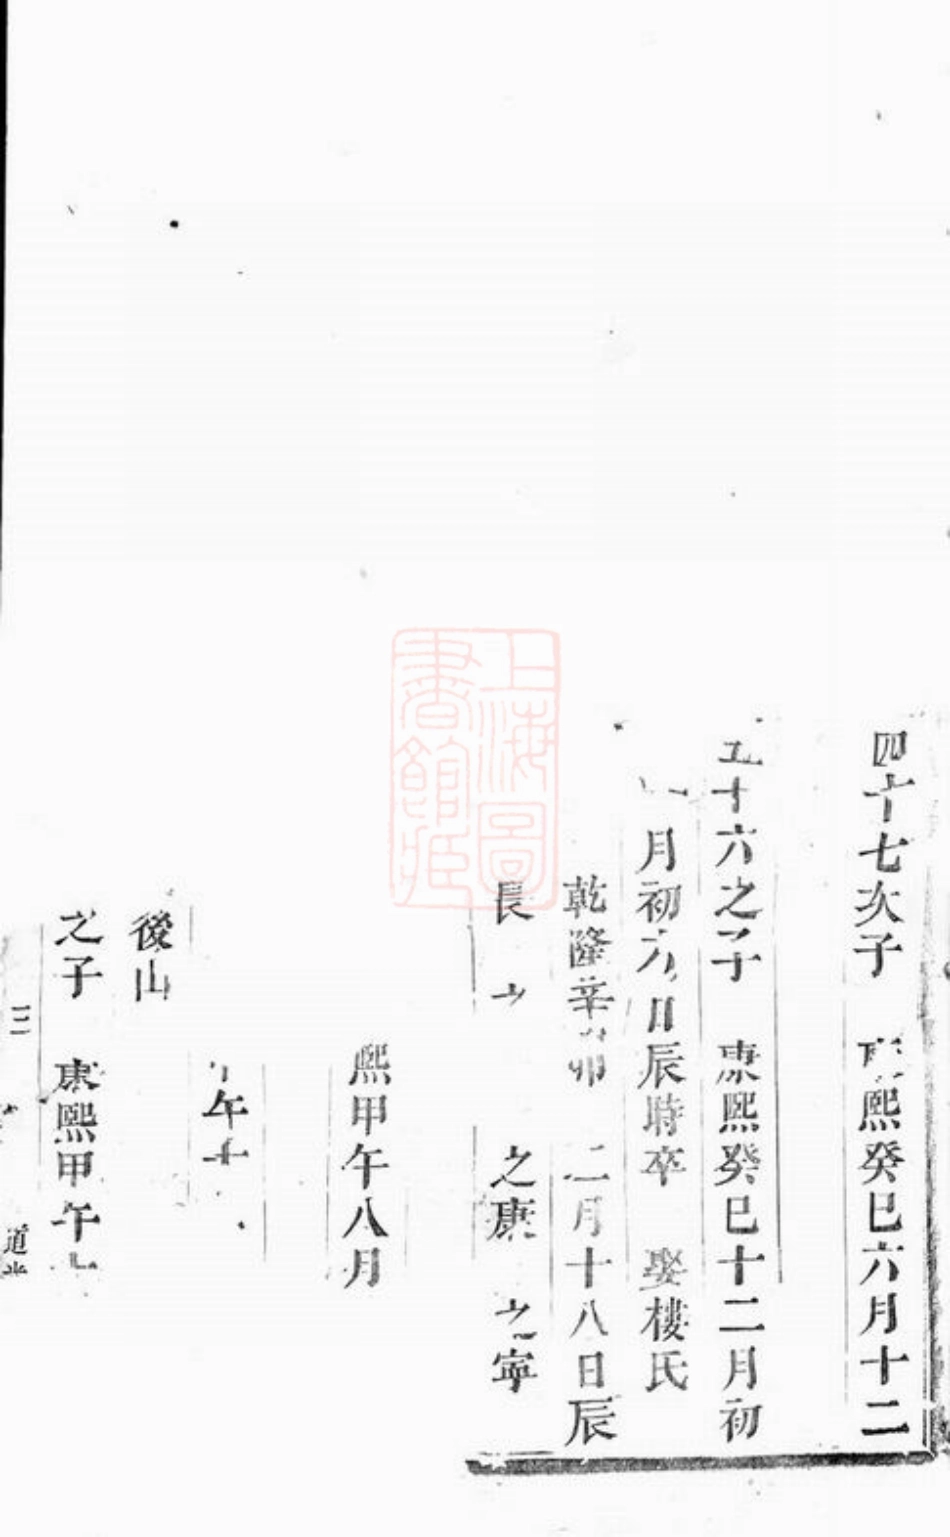 四十七次子 康熙癸巳六月十二
五十六之子 康熙癸巳十二月初
月初六日辰時卒 娶樓氏
乾隆辛卯 二月十八日辰
長 之康 之寧
熙甲午八月
午十
後山
之子 康熙甲午
三 道光
上海圖
書館藏